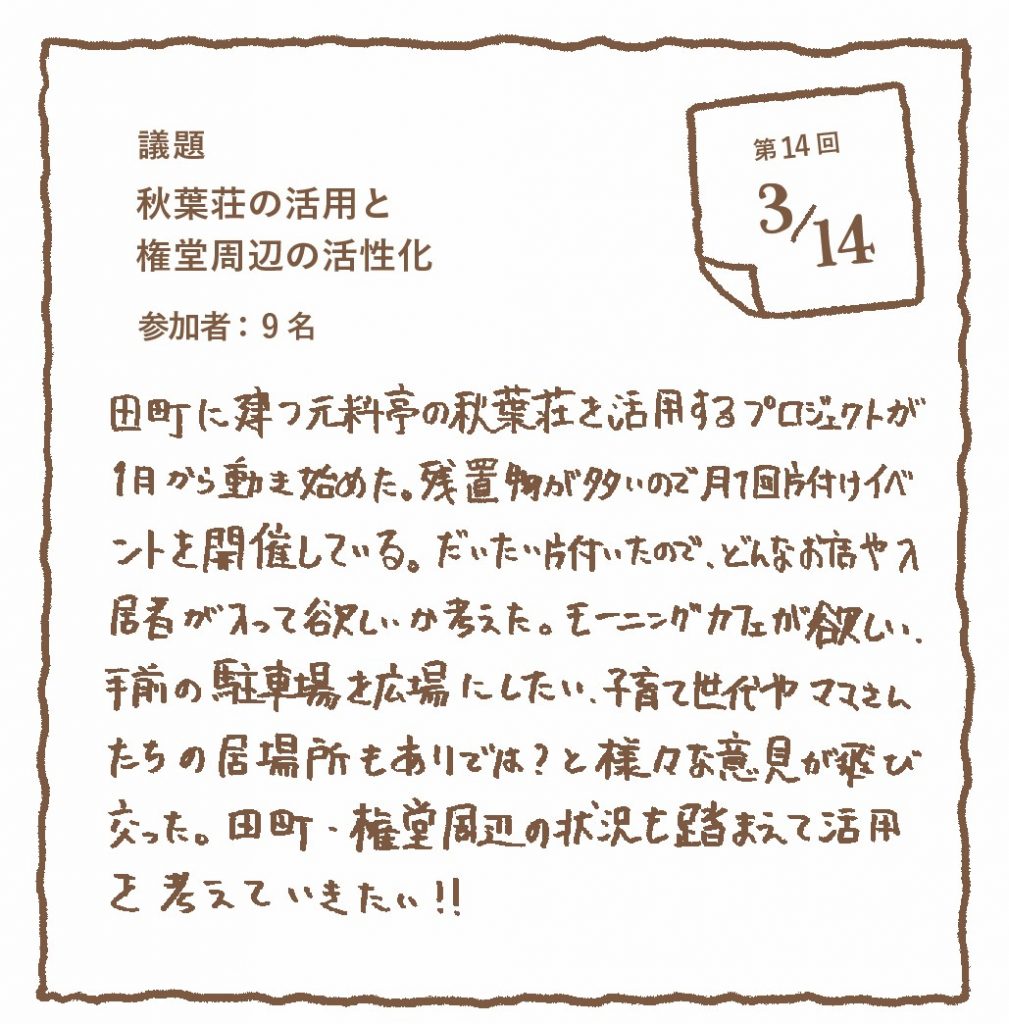 議題
第14回
3/14
秋葉荘の活用と
権堂周辺の活性化
参加者：9名
田町に建つ元料亭の秋葉荘を活用するプロジェクトが
1月から動き始めた。残置物が多いので月1回片付けイベ
ントを開催している。だいたい片付いたので、どんなお店や入
居者が入って欲しいか考えた。モーニングカフェが欲しい、
手前の駐車場を広場にしたい、子育て世代やママさん
たちの居場所もありでは？と様々な意見が飛び
交った。田町・権堂周辺の状況も踏まえて活用
を考えていきたい!!